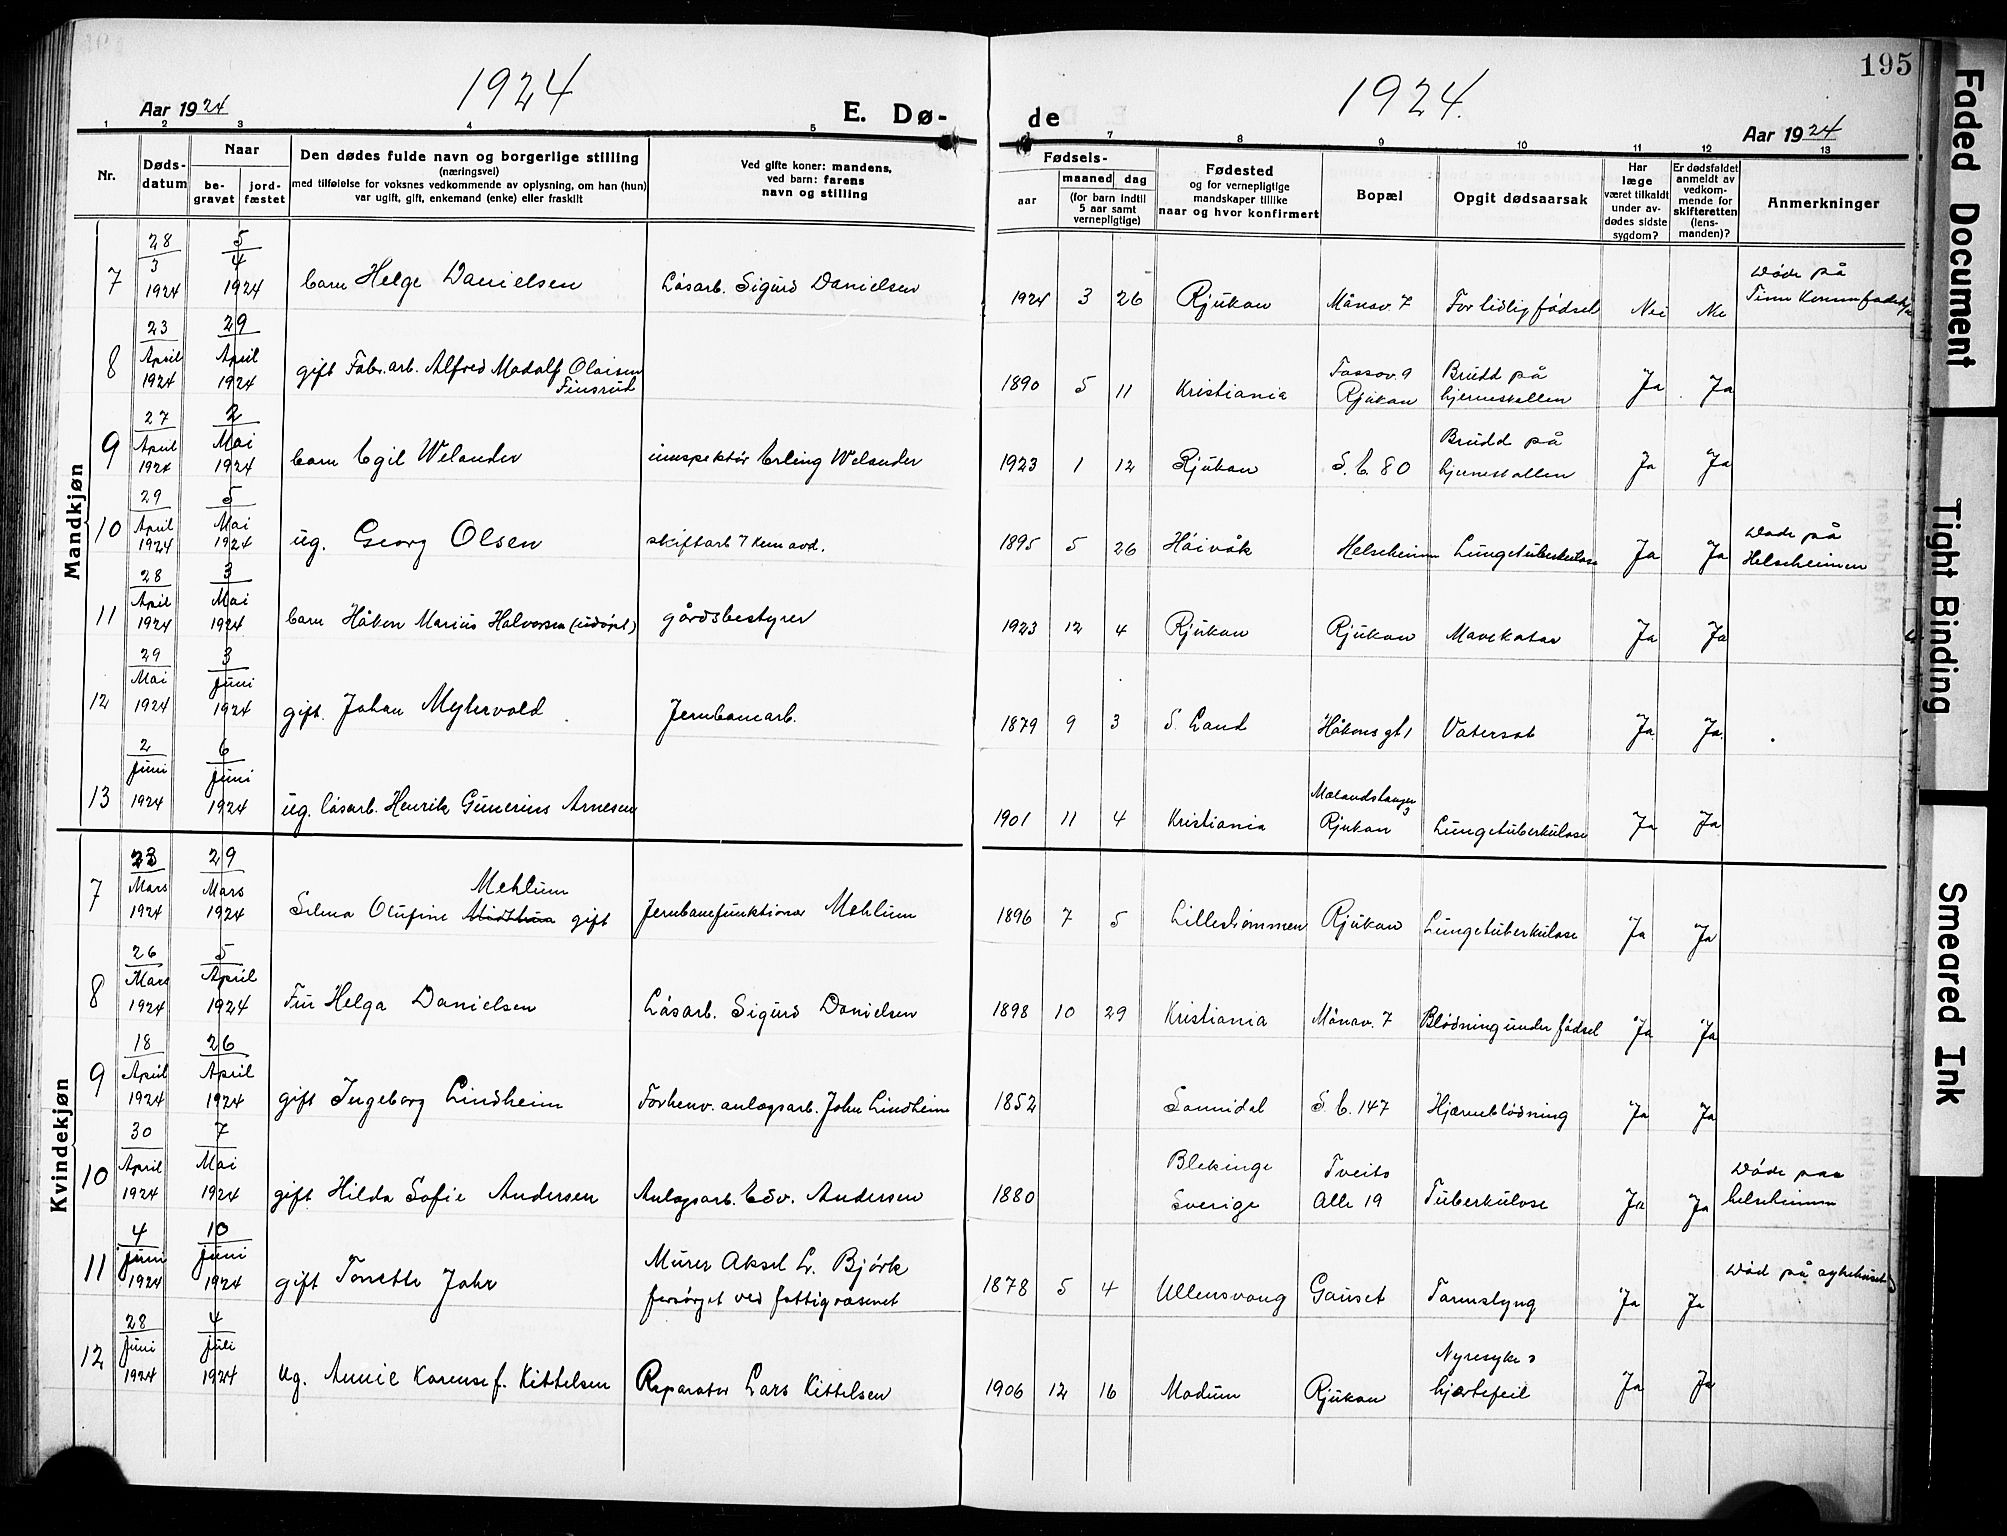 195
1924
1924.
Aar 1924
E. Dø-
de
Aar 1924
1 2 3 4 5 7 8 9 10 11 12 13
Nr.
Døds-
datum
Naar
be-
gravet
jord-
fæstet
Den dødes fulde navn og borgerlige stilling
(næringsvei)
med tilføielse for voksnes vedkommende av oplysning, om han (hun)
var ugift, gift, enkemand (enke) eller fraskilt
Ved gifte koner: mandens,
ved barn: farens
navn og stilling
Fødsels-
aar
maaned dag
(for barn indtil
5 aar samt
vernepligtige)
Fødested
og for vernepligtige
mandskaper tillike
naar og hvor konfirmert
Bopæl
Opgit dødsaarsak
Har
læge
været tilkaldt
under av-
dødes sidste
sygdom?
Er dødsfaldet
anmeldt av
vedkom-
mende for
skifteretten
(lens-
manden)?
Anmerkninger
Mandkjøn
7 28/3 1924 5/4 1924 barn Helge Danielsen Løsarb. Sigurd Danielsen 1924 3 26 Rjukan Månav. 7 For tidlig fødsel Nei Nei Døde på
Tinn
8 23 April 1924 29 April 1924 gift Fabr.arb. Alfred Madolf Olaisen
Finsrud 1890 5 11 Kristiania Fassov. 9
Rjukan Brudd på
hjerneskallen Ja Ja
9 27 April 1924 2 Mai 1924 barn Egil Welander innspektør Erling Welander 1923 1 12 Rjukan S. E. 80 Brudd på
hjerneskallen Ja Ja
10 29 April 1924 5 Mai 1924 ug. Georg Olsen skiftarb 7 Kem avd. 1895 5 26 Høivåk Helseheimen Lungetuberkulose Ja Ja Døde på
Helseheimen
11 28 April 1924 3 Mai 1924 barn Håkon Marius Halvorsen (udøpt) gårdsbestyrer 1923 12 4 Rjukan Rjukan Mavekatar Ja Ja
12 29 Mai 1924 3 Juni 1924 gift. Johan Myhrvold Jernbanearb. 1879 9 3 S. Land Håkons gt 1 Vatersot Ja Ja.
13 2 Juni 1924 6 Juni 1924 ug. løsarb. Henrik Gunerius Arnesen 1901 11 4 Kristiania Mælandshaugen 3
Rjukan Lungetuberkulose Ja Ja
Kvindekjøn
7 23 Mars 1924 29 Mars 1924 Selma Olufine Mehlum gift Jernbanefunktionær Mehlum 1896 7 5 Lillestrømmen Rjukan Lungetuberkulose Ja Ja
8 26 Mars 1924 5 April 1924 Fru Helga Danielsen Løsarb. Sigurd Danielsen 1898 10 29 Kristiania Månav. 7 Blødning under fødsel Ja Ja
9 18 April 1924 26 April 1924 gift Ingeborg Lindheim Forhenv. anlægsarb. John Lindheim 1852 Sannidal S. E. 147 Hjærneblødning Ja Ja
10 30 April 1924 7 Mai 1924 gift Hilda Sofie Andersen Anlægsarb. Edv. Andersen 1880 Blekinge
Sverige Tveits
Alle 19 Tuberkulose Ja Ja Døde paa
helseheimen
11 4 Juni 1924 10 Juni 1924 gift Tonette Jahr Murer Aksel L. Bjørk
forsørget ved fattigvæsenet 1878 5 4 Ullensvang Gauset Tarmslyng Ja Ja Død på sykehuset
12 28 Juni 1924 4 Juli 1924 ug. Annie Karense f. Kittelsen Reparatør Lars Kittelsen 1906 12 16 Modum Rjukan Nyresyke o
hjærtefeil Ja Ja
Faded Document
Tight Binding
Smeared Ink